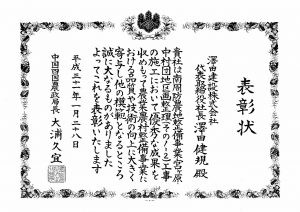 表彰状
澤田建設株式会社
代表取締役社長 澤田健規 殿
貴社は南周防農地整備事業宮ノ原
中村団地区画整理その1工事
の施工において優秀な成果を
収めもって農業農村整備事業に
おける品質や技術の向上に大きく
寄与し他の模範となるところ
誠に大なるものがありました
よってこれを表彰いたします
平成三十一年一月二十八日
中国四国農政局長 大浦久宜